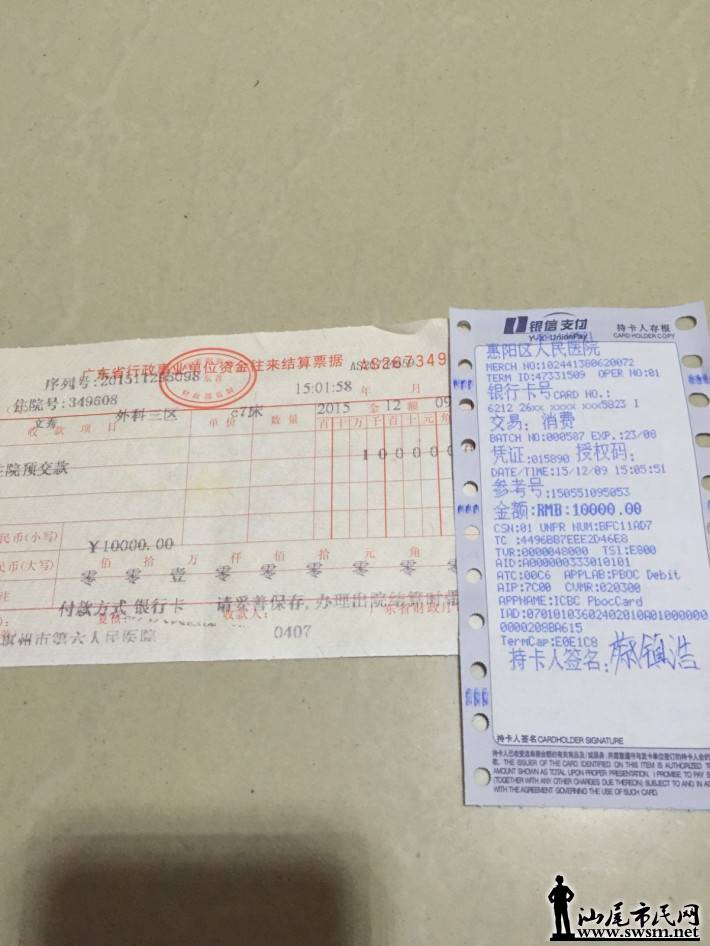 广东省行政事业单位资金往来结算票据
序列号:201511265098
15:01:58
年 月
住院号:349608
外科三区
c7床
2015
12
09
收 款 项 目
单 价
数 量
金 额
百十万千百十元角
住院预交款
100000
民币(小写)
¥10000.00
民币(大写)
佰 拾 万 仟 佰 拾 元 角
零 零 壹 零 零 零 零 零
付款方式 银行卡
请妥善保存,办理出院结算时需
复核
收款人:
惠州市第六人民医院
0407
银信支付
持卡人存根
CARD HOLDER COPY
惠阳区人民医院
MERCH NO:102441380620072
TERM ID:47331509 OPER NO:01
银行卡号 CARD NO.:
6212 26xx xxxx xxx5823 I
交易: 消费
BATCH NO:000587 EXP.:23/08
凭证:015890 授权码:
DATE/TIME:15/12/09 15:05:51
参考号:150551095053
金额:RMB:10000.00
CSN:01 UNPR NUM:BFC11AD7
TC :4496BB7EEE2D46E8
TVR:0000048000 TSI:E800
AID:A000000333010101
ATC:00C6 APPLAB:PBOC Debit
AIP:7C00 CVMR:020300
APPNAME:ICBC PbocCard
IAD:07010103602402010A01000000
0000209BA615
TermCap:E0E1C8
持卡人签名:
持卡人签名 CARDHOLDER SIGNATURE
THE ISSUER OF THE CARD IDENTIFIED ON THIS ITEM IS AUTHORIZED T
AMOUNT SHOWN AS TOTAL UPON PROPER PRESENTATION. I PROMISE TO PAY S
(TOGETHER WITH ANY OTHER CHARGES DUE THEREON) SUBJECT TO AND IN A
WITH THE AGREEMENT GOVERNING THE USE OF SUCH CARD.
汕尾市民网
www.swsm.net